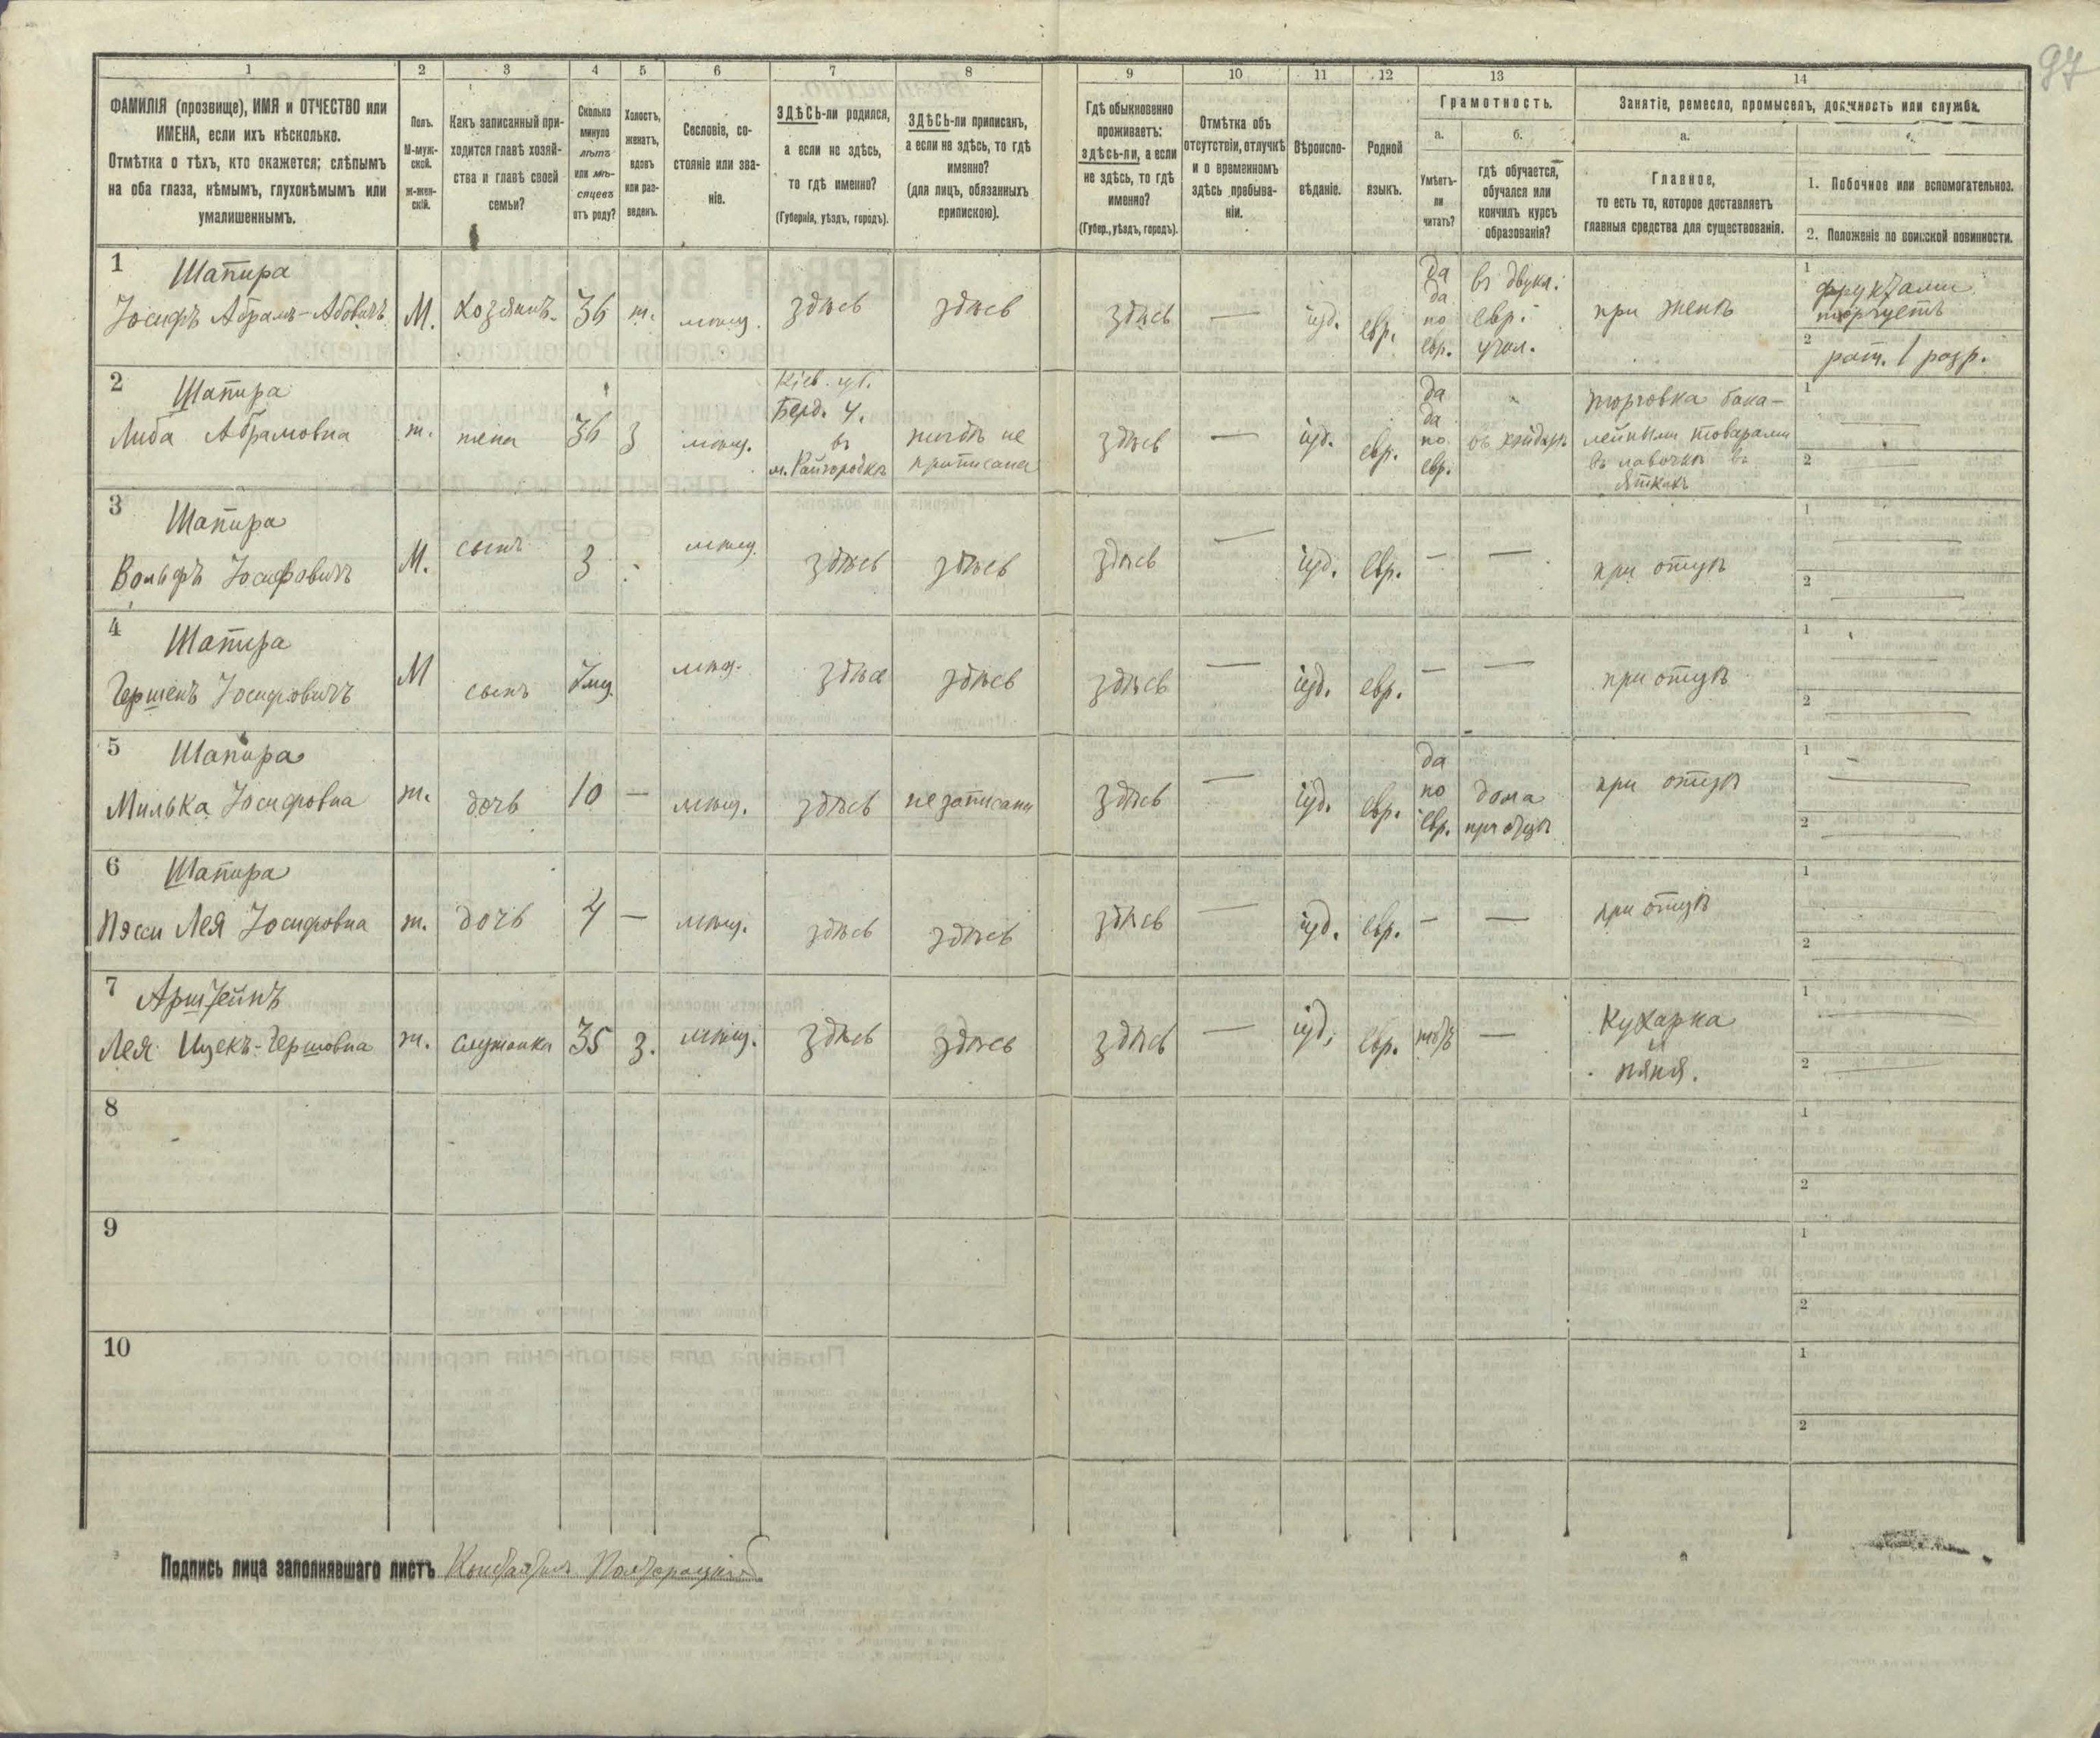 97
1
2
3
4
5
6
7
8
9
10
11
12
13
14
ФАМИЛІЯ (прозвище), ИМЯ и ОТЧЕСТВО или
ИМЕНА, если ихъ нѣсколько.
Отмѣтка о тѣхъ, кто окажется: слѣпымъ
на оба глаза, нѣмымъ, глухонѣмымъ или
умалишеннымъ.
Полъ.
М-муж-
ской.
Ж-жен-
скій.
Какъ записанный при-
ходится главѣ хозяй-
ства и главѣ своей
семьи?
Сколько
минуло
лѣтъ
или мѣ-
сяцевъ
отъ роду?
Холостъ,
женатъ,
вдовъ
или раз-
веденъ.
Сословіе, со-
стояніе или зва-
ніе.
ЗДѢСЬ-ли родился,
а если не здѣсь,
то гдѣ именно?
(Губернія, уѣздъ, городъ).
ЗДѢСЬ-ли приписанъ,
а если не здѣсь, то гдѣ
именно?
(для лицъ, обязанныхъ
припискою).
Гдѣ обыкновенно
проживаетъ:
здѣсь-ли, а если
не здѣсь, то гдѣ
именно?
(Губер., уѣздъ, городъ).
Отмѣтка объ
отсутствіи, отлучкѣ
и о временномъ
здѣсь пребыва-
ніи.
Вѣроиспо-
вѣданіе.
Родной
языкъ.
Грамотность.
а.
Умѣетъ-
ли
читать?
б.
гдѣ обучается,
обучался или
кончилъ курсъ
образованія?
Занятіе, ремесло, промыселъ, должность или служба.
а.
Главное,
то есть то, которое доставляетъ
главныя средства для существованія.
1. Побочное или вспомогательное.
2. Положеніе по воинской повинности.
1
Шапира
Іосифъ Абрамъ-Абовичъ
М.
Хозяинъ.
36
ж.
мѣщ.
здѣсь
здѣсь
здѣсь
—
іуд.
евр.
да
да
по
евр.
въ двукл.
евр.
учил.
при женѣ
1
фруктами
торгуетъ
2
рат. 1 разр.
2
Шапира
Либа Абрамовна
ж.
жена
36
З
мѣщ.
Кіев. гу.
Берд. у.
въ
м. Райгородкѣ
нигдѣ не
приписана
здѣсь
—
іуд.
евр.
да
да
по
евр.
въ хэйдерѣ
торговка бака-
лейными товарами
въ лавочкѣ въ
Яткахъ
1
2
3
Шапира
Вольфъ Іосифовичъ
М.
сынъ
3
мѣщ.
здѣсь
здѣсь
здѣсь
—
іуд.
евр.
—
—
при отцѣ
1
2
4
Шапира
Гершенъ Іосифовичъ
М
сынъ
7 мц.
мѣщ.
здѣсь
здѣсь
здѣсь
—
іуд.
евр.
—
—
при отцѣ
1
2
5
Шапира
Милька Іосифовна
ж.
дочь
10
—
мѣщ.
здѣсь
не записана
здѣсь
—
іуд.
евр.
да
по
евр.
дома
при отцѣ
при отцѣ
1
2
6
Шапира
Пэсси Лея Іосифовна
ж.
дочь
4
—
мѣщ.
здѣсь
здѣсь
здѣсь
—
іуд.
евр.
—
—
при отцѣ
1
2
7
Арштейнъ
Лея Ицекъ-Гершовна
ж.
служанка
35
З.
мѣщ.
здѣсь
здѣсь
здѣсь
—
іуд.
евр.
нѣтъ
—
Кухарка
и
няня.
1
2
8
1
2
9
1
2
10
1
2
Подпись лица заполнявшаго листъ